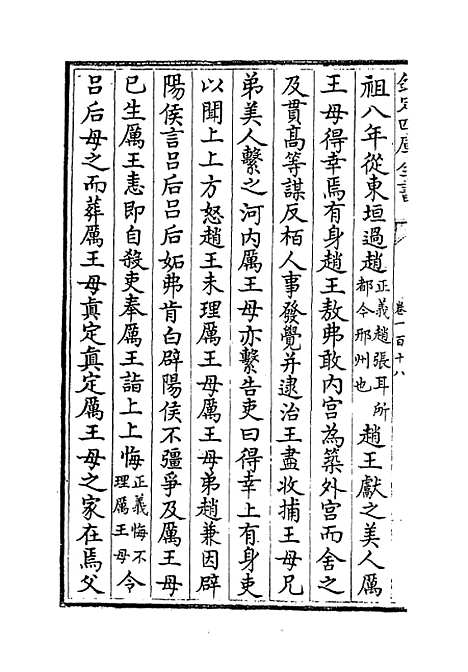 欽定四庫全書
卷一百十八
祖八年從東垣過趙正義趙張耳所都今邢州也趙王獻之美人厲
王母得幸焉有身趙王敖弗敢内宫為築外宫而舍之
及貫高等謀反栢人事發覺并逮治王盡收捕王母兄
弟美人繫之河内厲王母亦繫告吏曰得幸上有身吏
以聞上上方怒趙王未理厲王母厲王母弟趙兼因辟
陽侯言吕后吕后妬弗肯白辟陽侯不彊爭及厲王母
已生厲王恚即自殺吏奉厲王詣上上悔正義悔不理厲王母令
吕后母之而葬厲王母真定真定厲王母之家在焉父